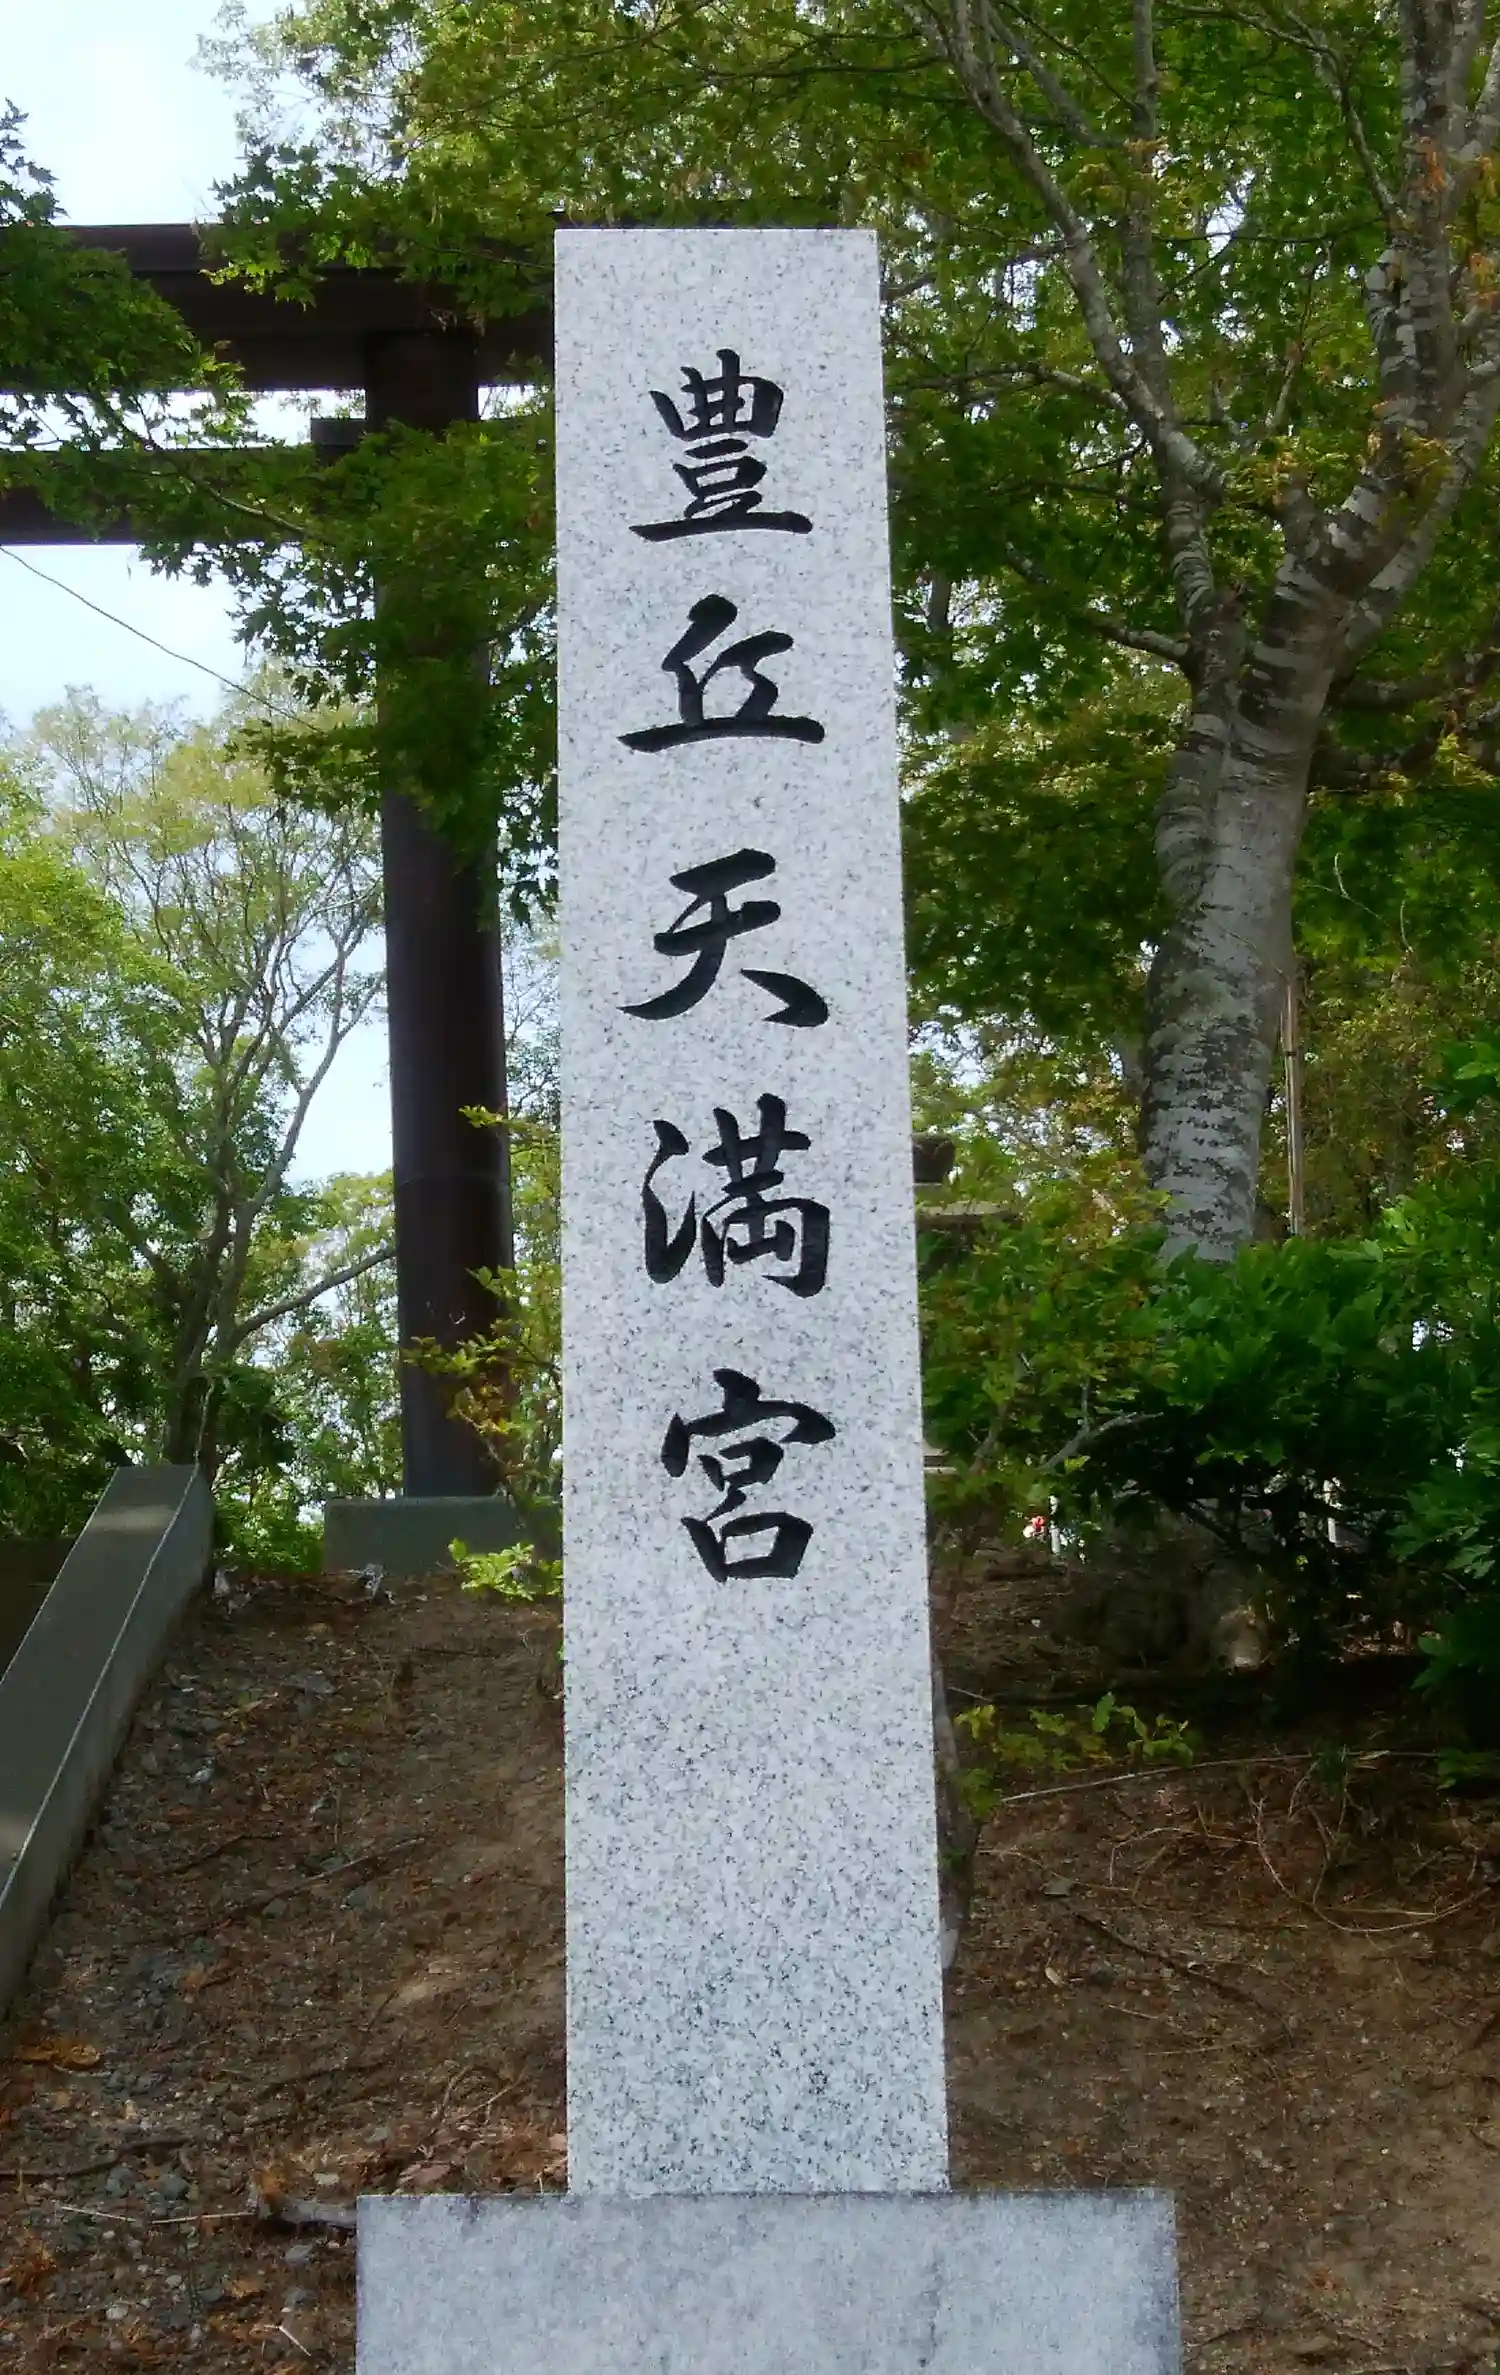 豊丘天満宮